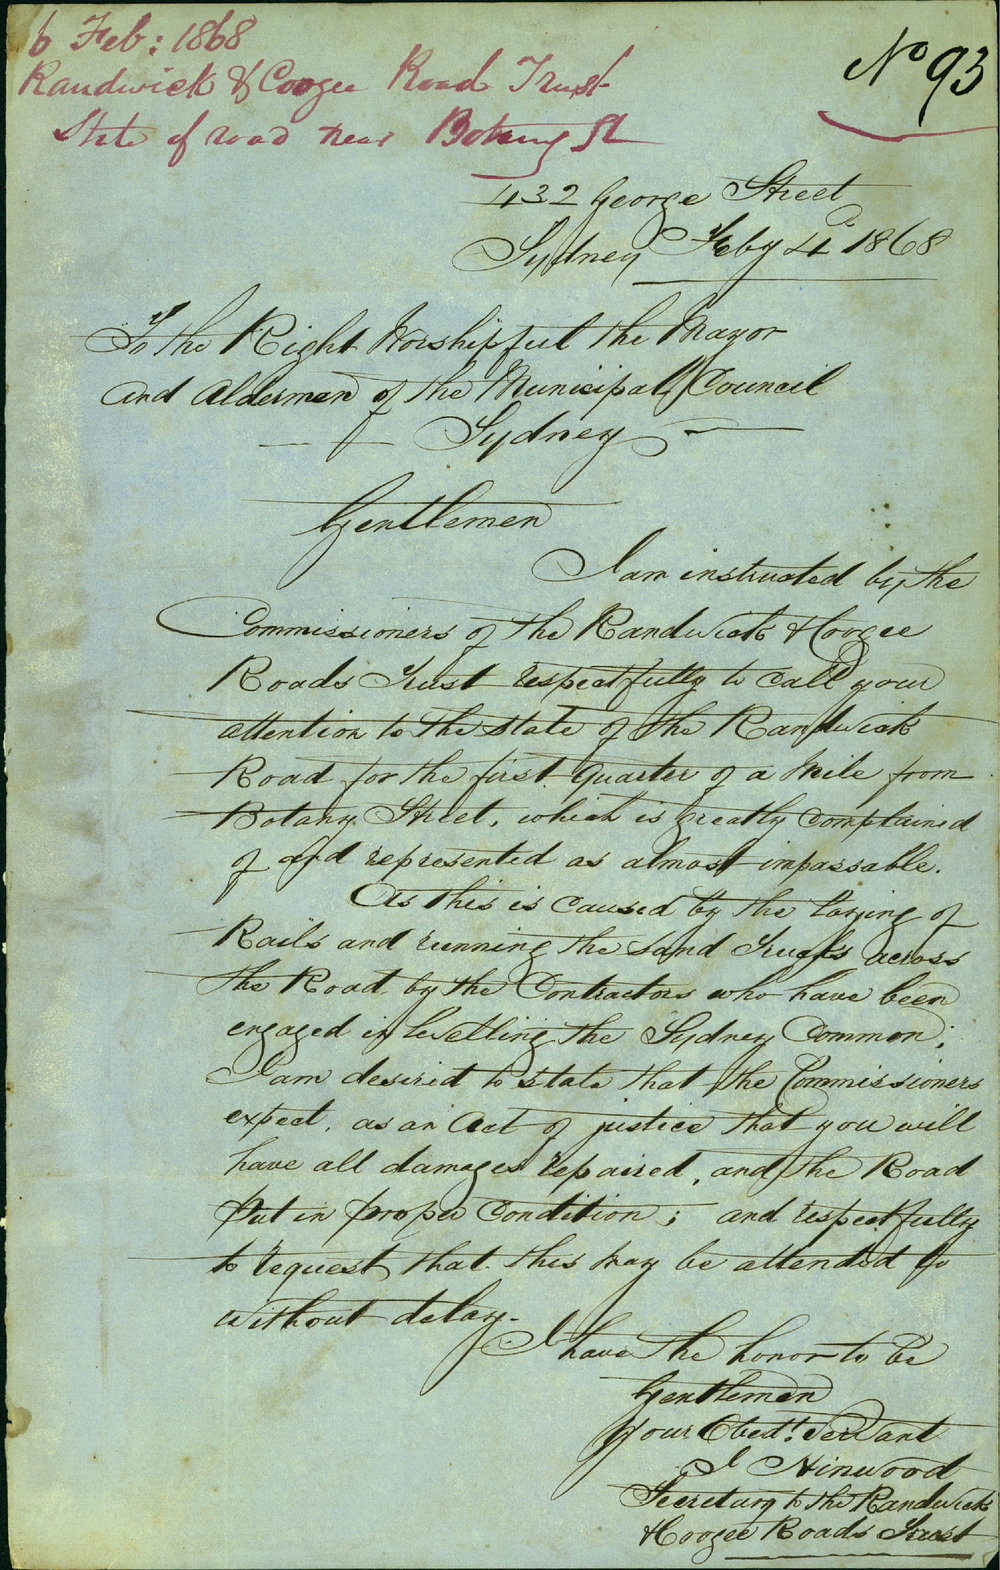 6 Feb: 1868
Randwick & Coogee Road Trust
State of road near Botany St
No 93
432 George Street
Sydney Feby 4 1868
To the Right Worshipful the Mayor
and Aldermen of the Municipal Council
Sydney
Gentlemen
I am instructed by the
Commissioners of the Randwick & Coogee
Roads Trust respectfully to call your
attention to the state of the Randwick
Road for the first Quarter of a Mile from
Botany Street, which is greatly complained
of and represented as almost impassable.
As this is caused by the laying of
Rails and running the sand Trucks across
the Road by the Contractors who have been
engaged in levelling the Sydney Common;
I am desired to state that the Commissioners
expect, as an Act of justice that you will
have all damages repaired, and the Road
put in proper condition; and respectfully
to request that this may be attended to
without delay.
I have the honor to be
Gentlemen
Your Obedt. Servant
J Hinwood
Secretary to the Randwick
& Coogee Roads Trust